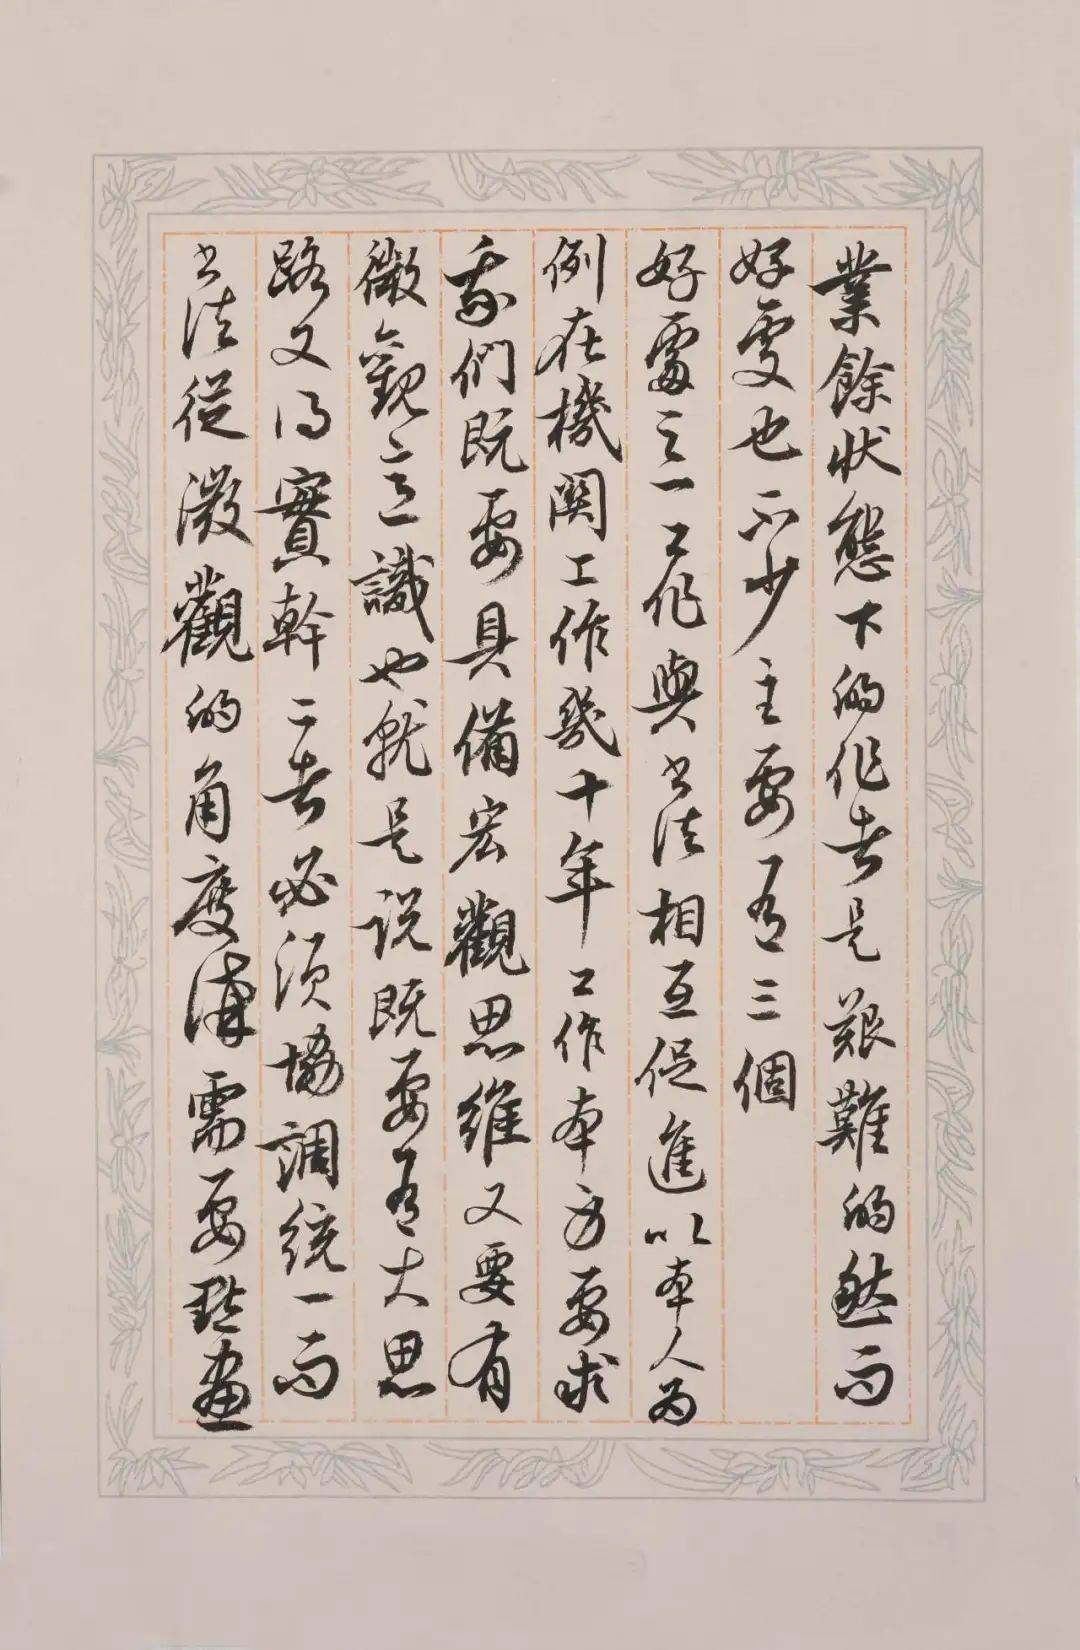 業餘狀態下的作者是艱難的然而
好處也不少主要有三個
好處之一工作與书法相互促進以本人为
例在機関工作幾十年工作本身要求
我們既要具備宏觀思維又要有
微觀意識也就是说既要有大思
路又得實幹二者必須協調統一而
书法從微觀的角度講需要點畫